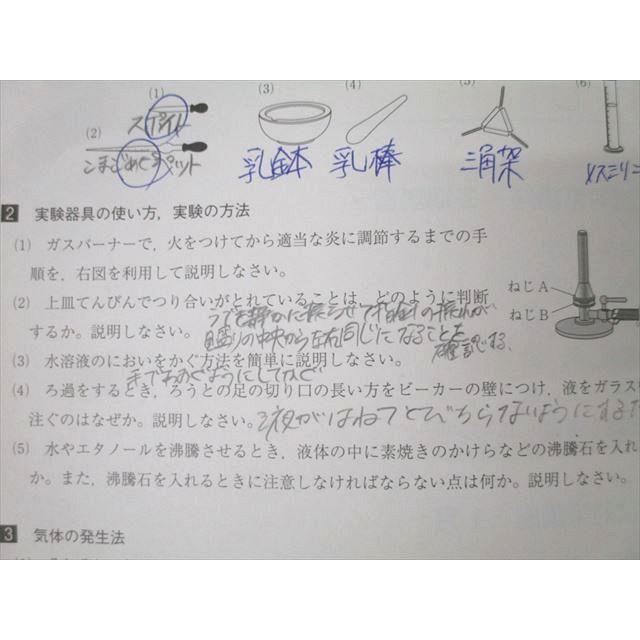 (1)
(3)
(4)
(5)
(6)
スポイト
(2)
こまごめピペット
乳鉢
乳棒
三角架
メスシリン
2 実験器具の使い方，実験の方法
(1) ガスバーナーで，火をつけてから適当な炎に調節するまでの手
順を，右図を利用して説明しなさい。
ねじA
ねじB
(2) 上皿てんびんでつり合いがとれていることは，どのように判断
するか。説明しなさい。
目盛りの中央から左右同じになることを
確認する。
(3) 水溶液のにおいをかぐ方法を簡単に説明しなさい。
手であおぐようにしてかぐ
(4) ろ過をするとき，ろうとの足の切り口の長い方をビーカーの壁につけ，液をガラス
注ぐのはなぜか。説明しなさい。液がはねてとびちらないようにするた
(5) 水やエタノールを沸騰させるとき，液体の中に素焼きのかけらなどの沸騰石を入れ
か。また，沸騰石を入れるときに注意しなければならない点は何か。説明しなさい。
3 気体の発生法